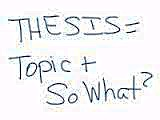 THESIS=
Topic +
So What?